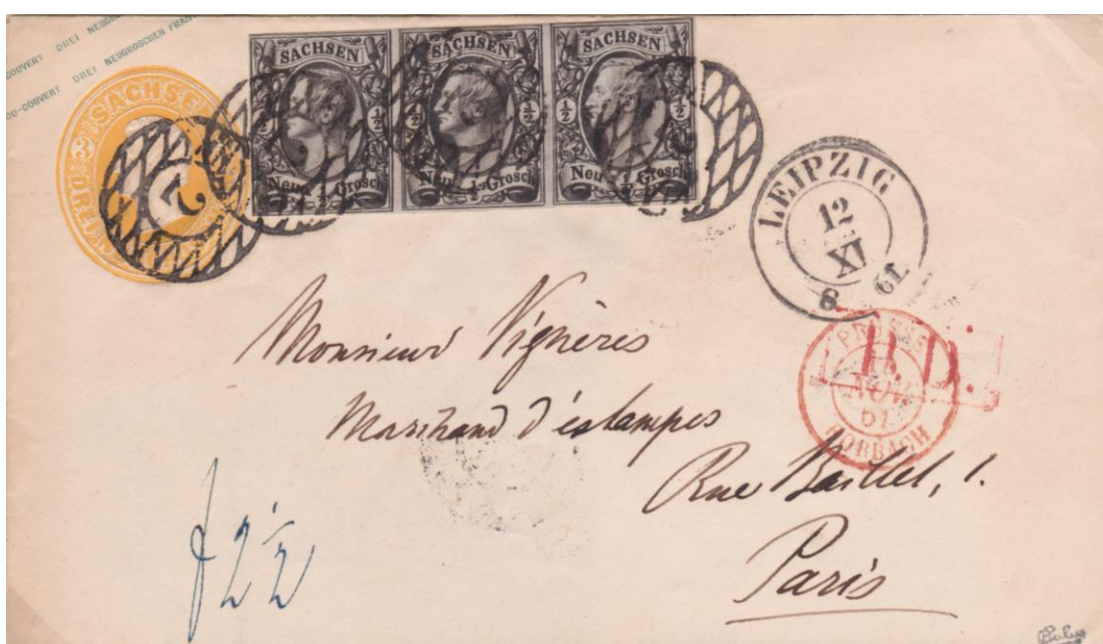 COUVERT DREI NEUGRO
CO-COUVERT DREI NEUGROSCHEN FRAN
SACHSEN
3
DREI
2
SACHSEN
½
½
Neu ½ Grosch
SACHSEN
½
½
Neu ½ Grosch
SACHSEN
½
½
Neu ½ Grosch
LEIPZIG
12
XI
8 61.
P.D.
PRUSSE
NOV.
61
FORBACH
Monsieur Vignères
Marchand d'estampes
Rue Baillet, 1.
Paris
f 2½